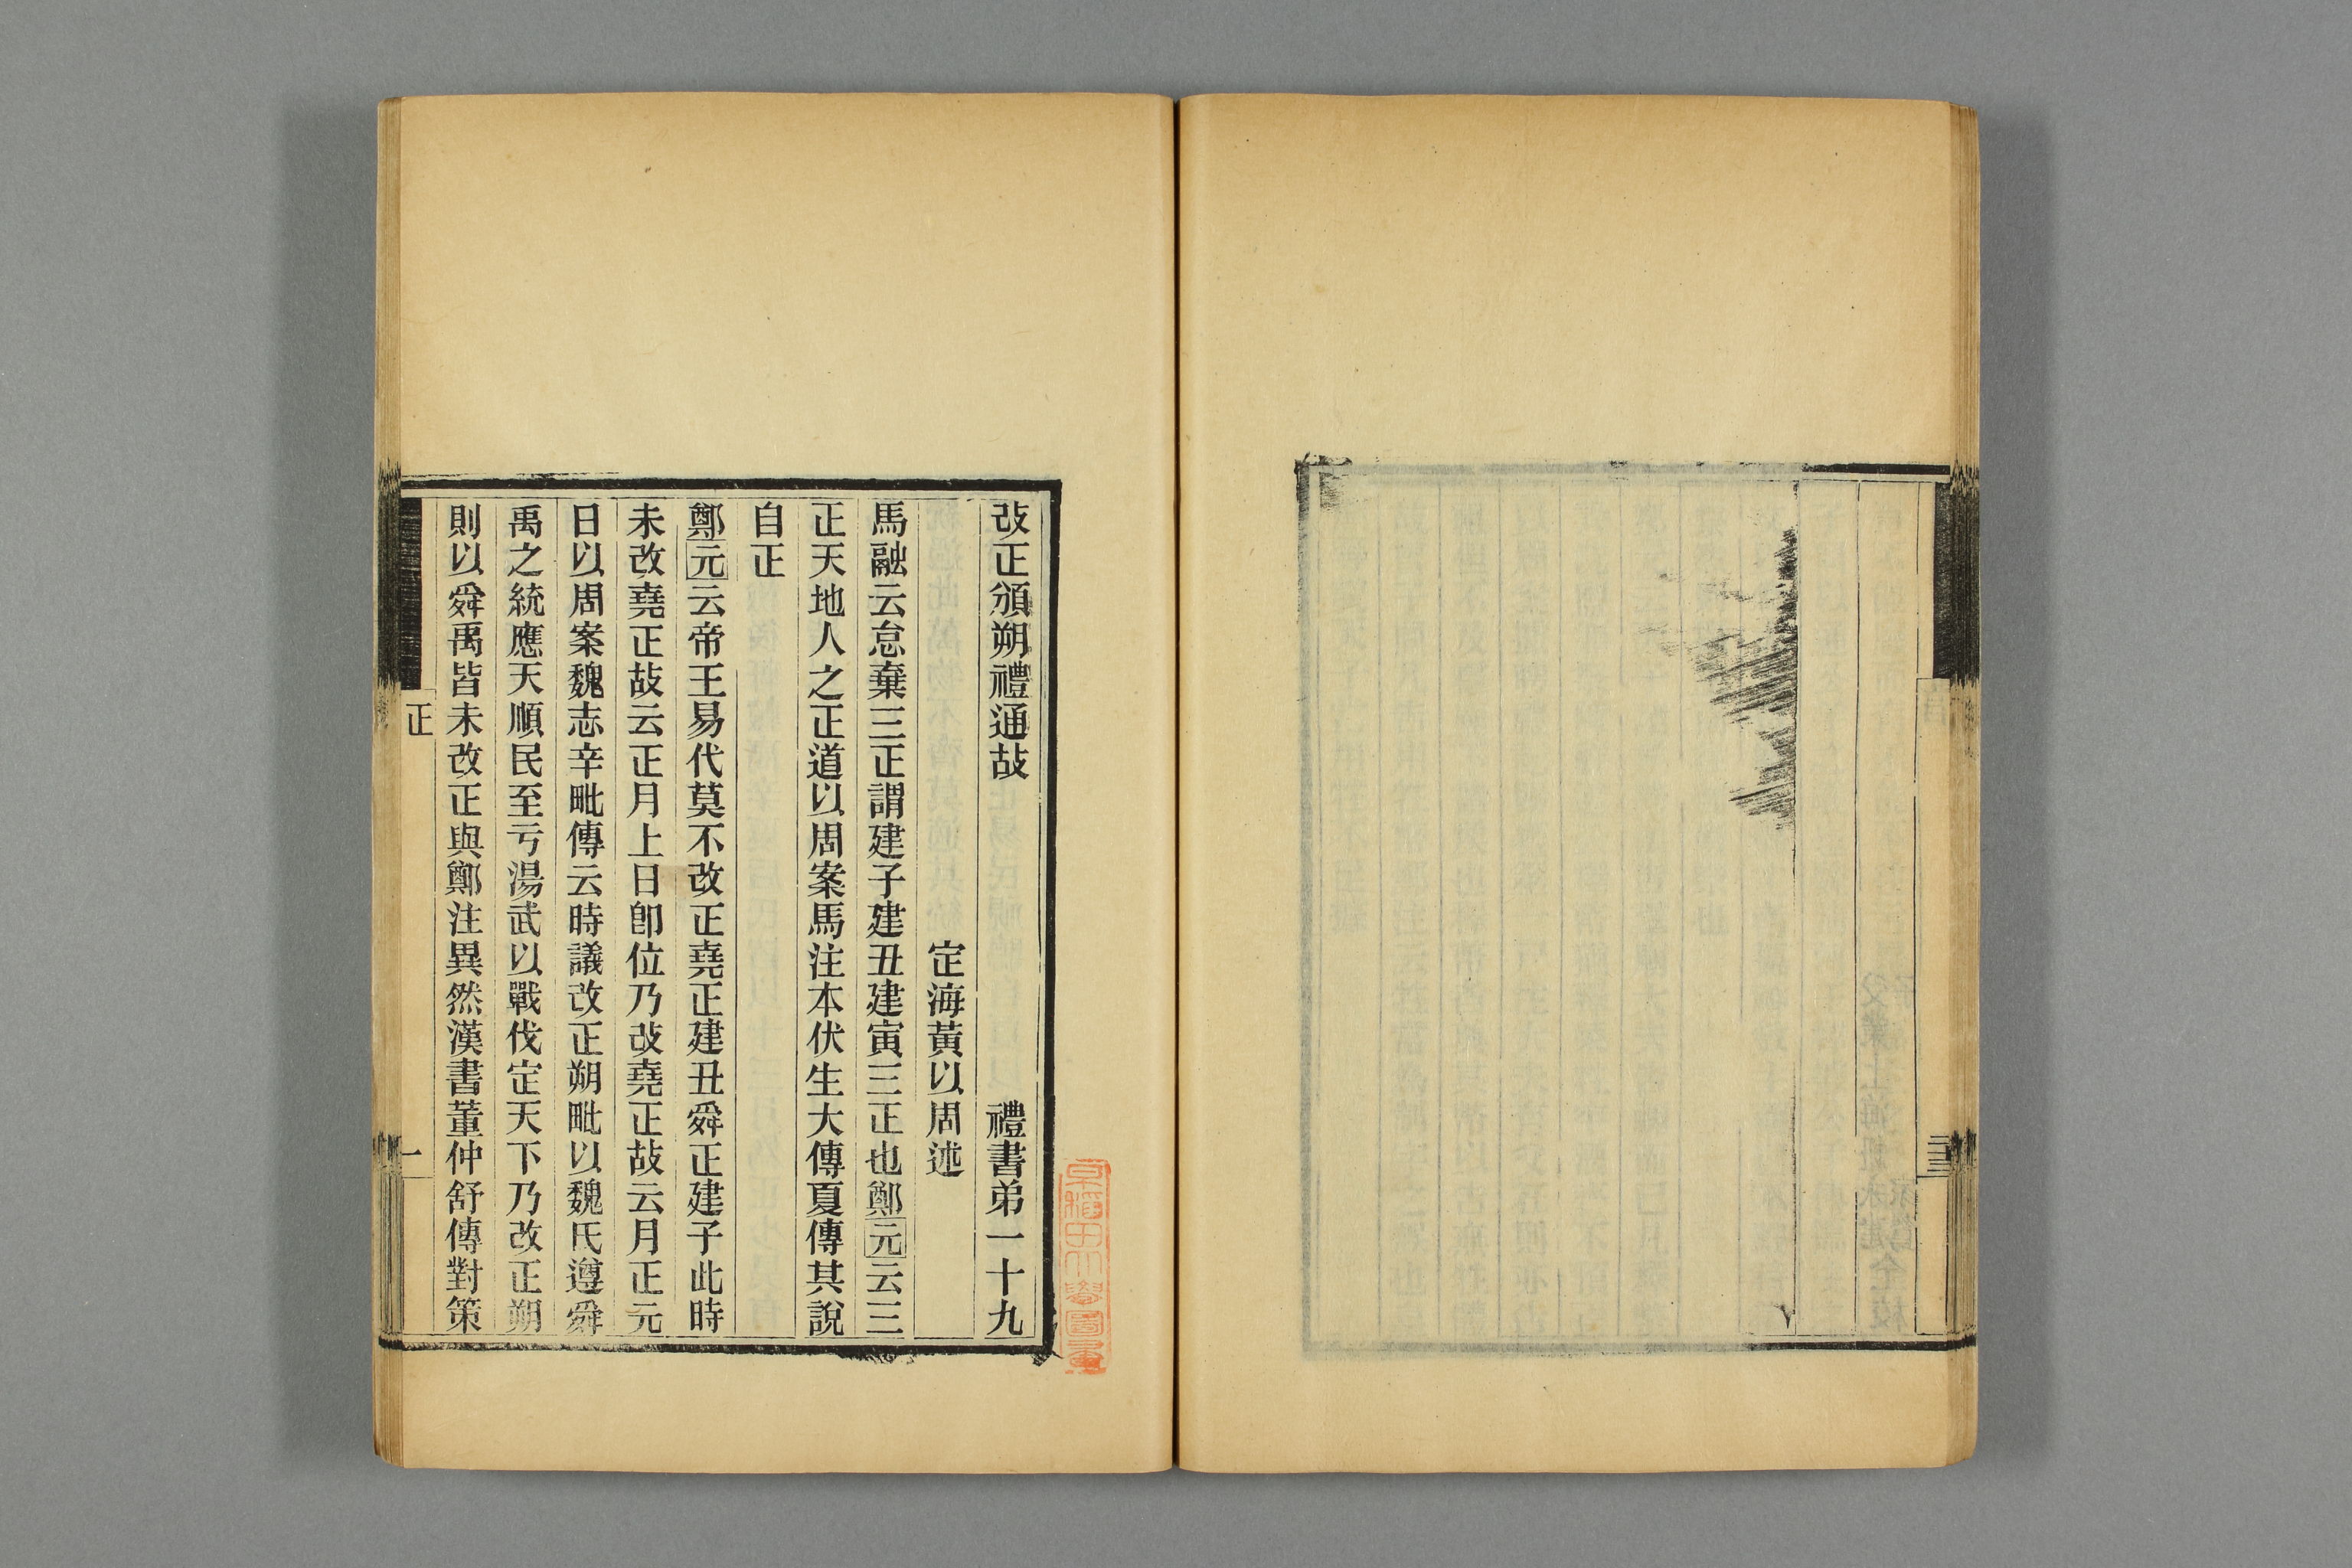 改正頒朔禮通故 禮書弟一十九
定海黃以周述
馬融云怠棄三正謂建子建丑建寅三正也鄭元云三
正天地人之正道以周案馬注本伏生大傳夏傳其說
自正
鄭元云帝王易代莫不改正堯正建丑舜正建子此時
未改堯正故云正月上日卽位乃改堯正故云月正元
日以周案魏志辛毗傳云時議改正朔毗以魏氏遵舜
禹之統應天順民至亏湯武以戰伐定天下乃改正朔
則以舜禹皆未改正與鄭注異然漢書董仲舒傳對策
正
一
早稻田大學圖書